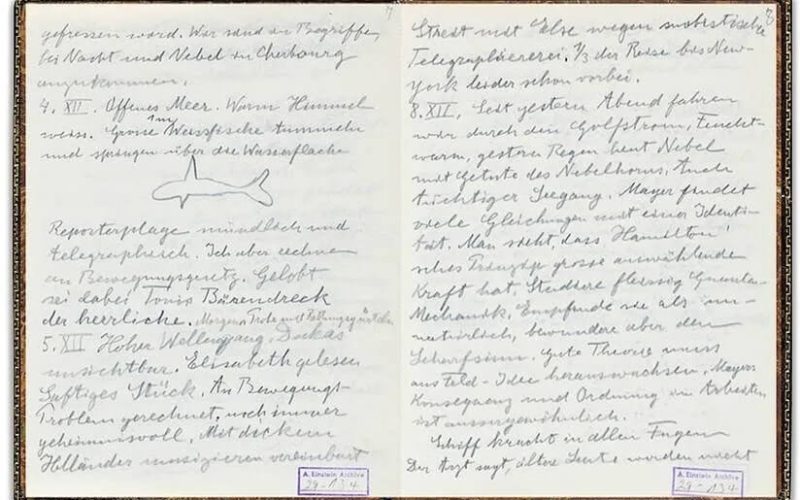 7
gefressen ward. Wir sind im Begriffe,
bei Nacht und Nebel in Cherbourg
anzukommen.
4. XII. Offenes Meer. Warm Himmel
weiss. Grosse Weissfische tummeln
und springen über die Wasserfläche
Reporterplage mündlich und
telegraphisch. Ich aber rechne
an Bewegungsgesetz. Gelobt
sei dabei Tonis Bärendreck
der herrliche.
5. XII Hoher Wellengang, Dukas
unsichtbar. Elisabeth gelesen
Saftiges Stück. An Bewegungs-
Problem gerechnet, noch immer
geheimnisvoll. Mit dickem
Holländer musizieren vereinbart
A. Einstein Archive
29-134
8
Streit mit Else wegen
Telegraphiererei. 1/3 der Reise bis New-
york leider schon vorbei.
8. XII. Seit gestern Abend fahren
wir durch den Golfstrom, Feucht-
warm, gestern Regen heut Nebel
mit Getute des Nebelhorns. Auch
tüchtiger Seegang. Mayer findet
viele Gleichungen mit einer Identi-
tät. Man sieht, dass Hamilton'
sches Prinzip grosse auswählende
Kraft hat. Studiere fleissig Quanten-
Mechanik. Empfinde sie als un-
natürlich, bewundere aber den
Scharfsinn. Gute Theorie muss
aus Feld-Idee herauswachsen. Mayers
Konsequenz und Ordnung im Arbeiten
ist aussergewöhnlich.
Schiff kracht in allen Fugen
Der Arzt sagt, ältere Leute werden nicht
A. Einstein Archive
29-134